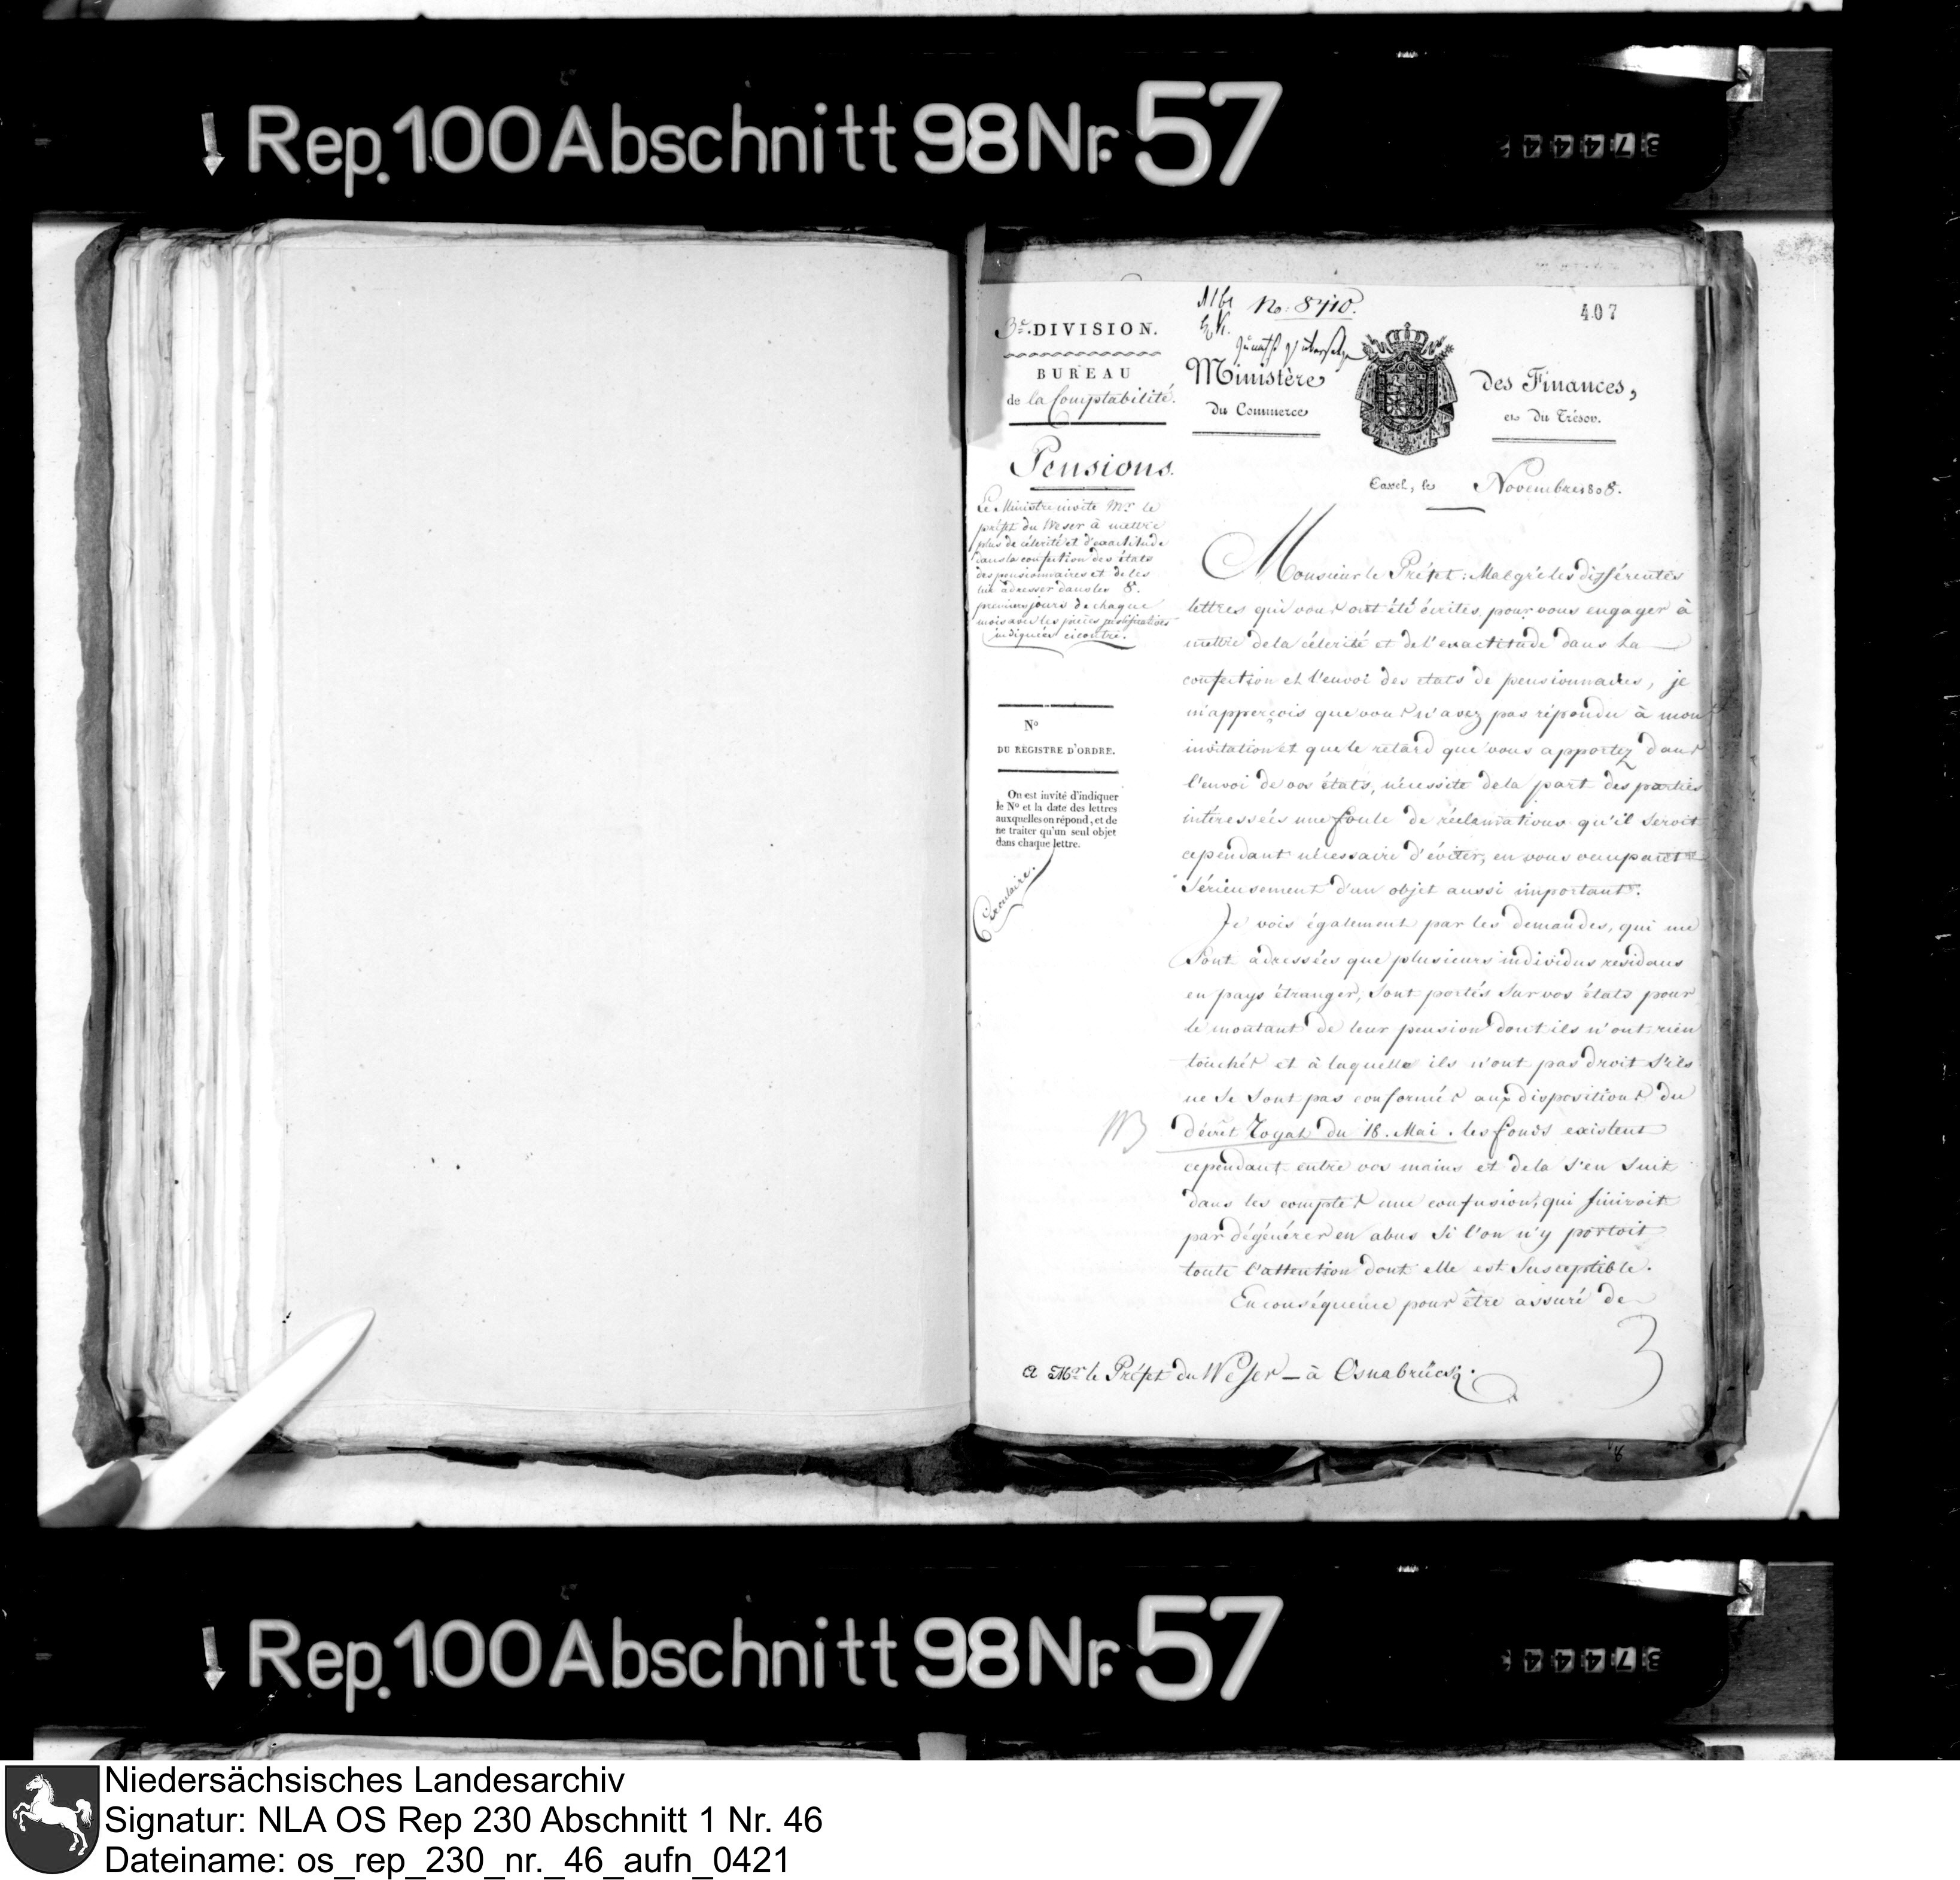 Rep. 100 Abschnitt 98 Nr. 57
407
No. 8710.
3e. DIVISION.
BUREAU
de la Comptabilité.
Ministère des Finances,
du Commerce et du Trésor.
Pensions.
Cassel, le Novembre 1808.
Le Ministre invite Mr. le
préfet du Weser à mettre
plus de célerité et d'exactitude
dans la confection des états
des pensionnaires et de les
lui adresser dans les 8.
premiers jours de chaque
mois avec les pièces justificatives
indiquées cicontre.
No
DU REGISTRE D'ORDRE.
On est invité d'indiquer
le No et la date des lettres
auxquelles on répond, et de
ne traiter qu'un seul objet
dans chaque lettre.
Circulaire.
Monsieur le Préfet: Malgré les différentes
lettres qui vous ont été écrites, pour vous engager à
mettre de la célerité et de l'exactitude dans la
confection et l'envoi des etats de pensionnaires, je
m'apperçois que vous n'avez pas répondu à mon
invitation et que le retard que vous apportez dans
l'envoi de vos états, nécessite de la part des parties
intéressées une foule de réclamations qu'il seroit
cependant nécessaire d'éviter, en vous occupant
sérieusement d'un objet aussi important.
Je vois également par les demandes, qui me
sont adressées que plusieurs individus residans
en pays étranger, sont portés sur vos états pour
le montant de leur pension dont ils n'ont rien
touchés et à laquelle ils n'ont pas droit s'ils
ne se sont pas conformés aux dispositions du
décret Royal du 18. Mai. les fonds existent
cependant entre vos mains et de la s'en suit
dans les comptes une confusion, qui finiroit
par dégénérer en abus si l'on n'y portoit
toute l'attention dont elle est susceptible.
En conséquence pour être assuré de
a Mr. le Préfet du Weser - à Osnabrück.
Rep. 100 Abschnitt 98 Nr. 57
Niedersächsisches Landesarchiv
Signatur: NLA OS Rep 230 Abschnitt 1 Nr. 46
Dateiname: os_rep_230_nr._46_aufn_0421